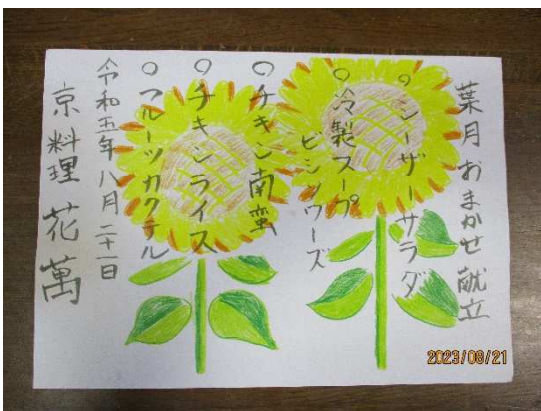 葉月おまかせ献立
○シーザーサラダ
○冷製スープ
ビシソワーズ
○チキン南蛮
○チキンライス
○フルーツカクテル
令和五年八月二十一日
京料理 花萬
2023/08/21